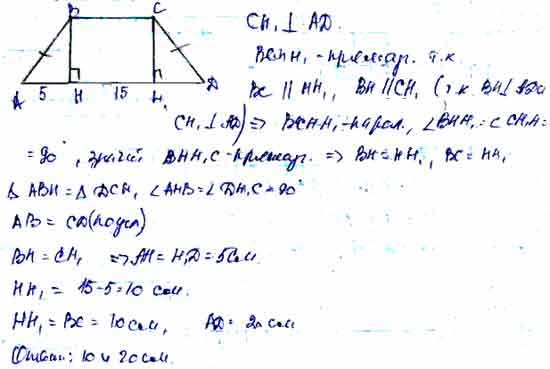 B C
A 5 H 15 H₁ D
CH₁ ⊥ AD.
BCHH₁ - прямоуг. т.к.
BC || HH₁, BH || CH₁ (т.к. BH ⊥ AD и
CH₁ ⊥ AD) => BCHH₁ - парал., ∠BHH₁ = ∠CH₁H =
= 90°, значит BHH₁C - прямоуг. => BH = HH₁, BC = HH₁
Δ ABH = Δ DCH₁, ∠AHB = ∠DH₁C = 90°
AB = CD (по усл)
BH = CH₁ => AH = H₁D = 5 см.
HH₁ = 15-5=10 см.
HH₁ = BC = 10 см, AD = 20 см
Ответ: 10 и 20 см.